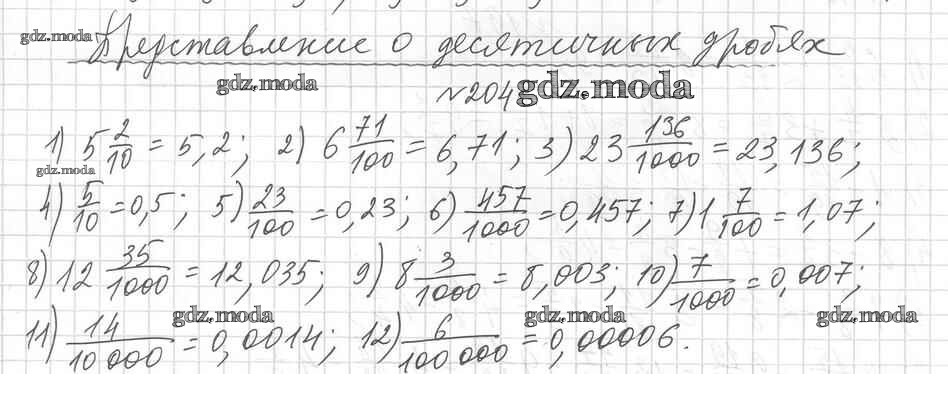 gdz.moda Представление о десятичных дробях
gdz.moda
№204 gdz.moda
1) 5 2/10 = 5,2; 2) 6 71/100 = 6,71; 3) 23 136/1000 = 23,136;
gdz.moda
4) 5/10 = 0,5; 5) 23/100 = 0,23; 6) 457/1000 = 0,457; 7) 1 7/100 = 1,07;
8) 12 35/1000 = 12,035; 9) 8 3/1000 = 8,003; 10) 7/1000 = 0,007;
gdz.moda gdz.moda gdz.moda
11) 14/10 000 = 0,0014; 12) 6/100 000 = 0,00006.